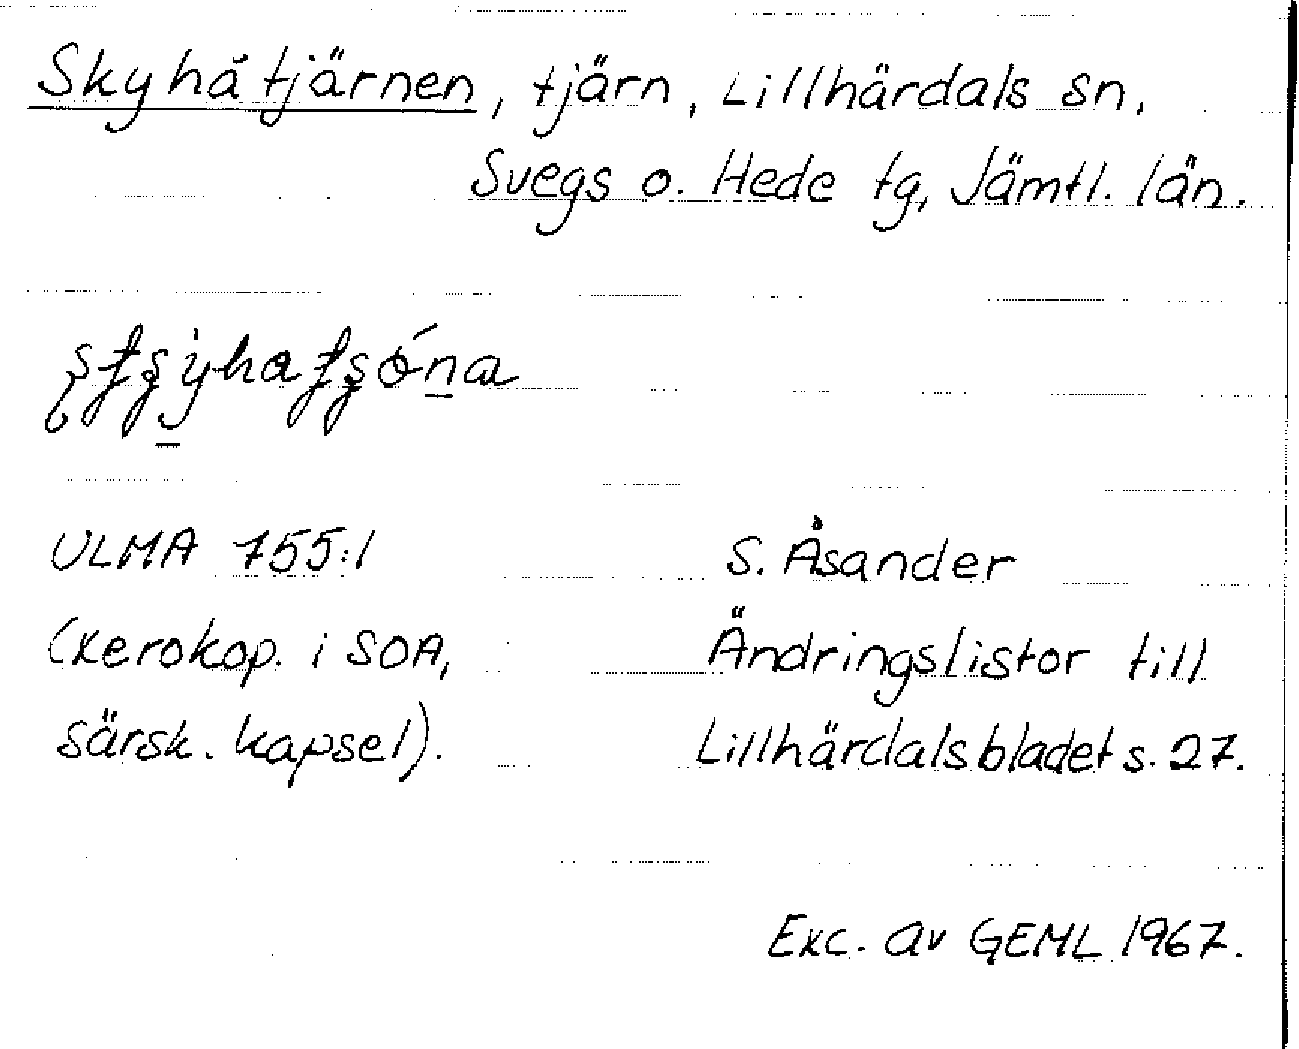 Skyhåtjärnen, tjärn, Lillhärdals sn,
Svegs o. Hede tg, Jämtl. län.
ULMA 755:1 S. Åsander
(Xerokop. i SOA, Ändringslistor till
särsk. kapsel). Lillhärdalsbladet s. 27.
Exc. av GEML 1967.